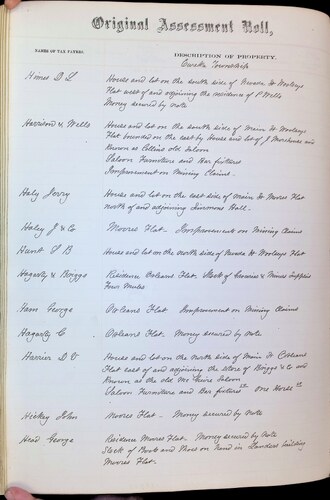 Original Assessment Roll,
NAMES OF TAX PAYERS.
DESCRIPTION OF PROPERTY.
Eureka Township
Himes D L
House and lot on the south side of Main St Woolsys
Flat west of and adjoining the residence of P Wells
Money secured by note
Harrison & Wells
House and lot on the south side of Main St Woolseys
Flat bounded on the east by House and lot of J Marchant and
Known as Collins old Saloon
Saloon Furniture and Bar fixtures
Improvement on Mining Claims.
Haly Jerry
House and lot on the east side of Main St Moores Flat
north of and adjoining Hall.
Haley J & Co
Moores Flat - Improvement on Mining Claims
Hunt S B
House and lot on the north side of Main St Woolseys Flat
Hagerty & Briggs
Residence Orleans Flat. Stock of Groceries & Miners Supplies
Four Mules
Ham George
Orleans Flat Improvement on Mining Claims
Hagarty C
Orleans Flat. Money secured by note
Harrier D V
House and lot on the north side of Main St Orleans
Flat east of and adjoining the store of Briggs & Co and
Known as the old Mc Guire Saloon
Saloon Furniture and Bar fixtures One Horse
Hickey John
Moores Flat - Money secured by note
Head George
Residence Moores Flat. Money secured by note
Stock of Boots and Shoes on hand in Landers building
Moores Flat.